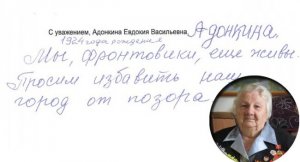 С уважением, Адонкина Евдокия Васильевна, Адонкина.
1924 года рождения
Мы, фронтовики, еще живы.
Просим избавить наш
город от позора